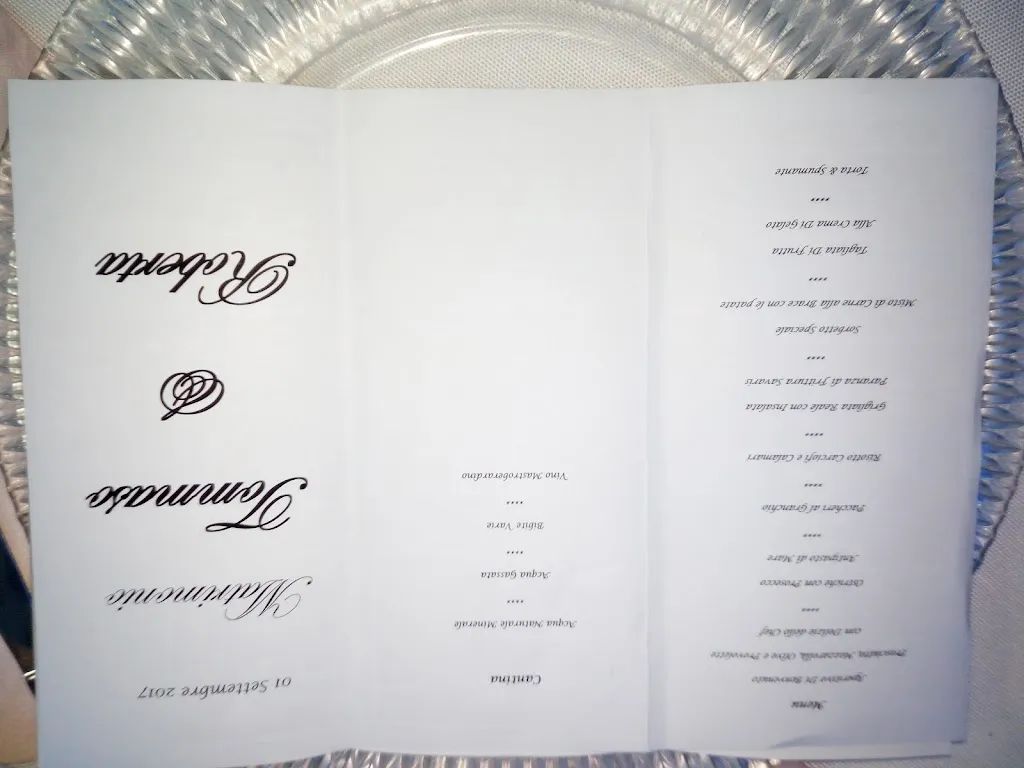 Menu
Aperitivo Di Benvenuto
Prosciutto, Mozzarella, Olive e Provolette
con Delizie dello Chef
****
Ostriche con Prosecco
Antipasto di Mare
****
Paccheri al Granchio
****
Risotto Carciofi e Calamari
****
Grigliata Reale con Insalata
Paranza di Frittura Savaris
****
Sorbetto Speciale
Misto di Carne alla Brace con le patate
****
Tagliata Di Frutta
Alla Crema Di Gelato
****
Torta & Spumante
Cantina
Acqua Naturale Minerale
****
Acqua Gassata
****
Bibite Varie
****
Vino Mastroberardino
01 Settembre 2017
Matrimonio
Tommaso
&
Roberta